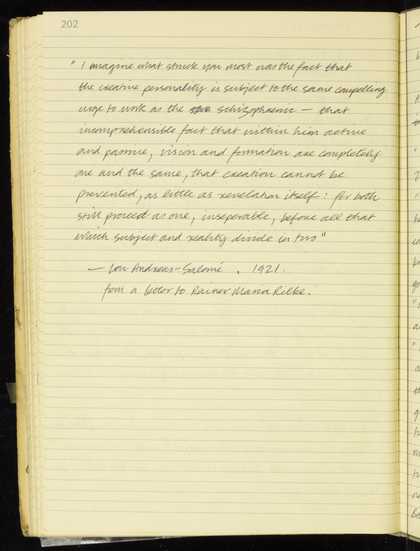 202
" I imagine what struck you most was the fact that
the creative personality is subject to the same compelling
urge to work as the schizophrenic — that
incomprehensible fact that within him active
and passive, vision and formation are completely
one and the same, that creation cannot be
prevented, as little as revelation itself: for both
still proceed as one, inseparable, before all that
which subject and reality divide in two"
— Lou Andreas-Salomé . 1921.
from a letter to Rainer Maria Rilke.